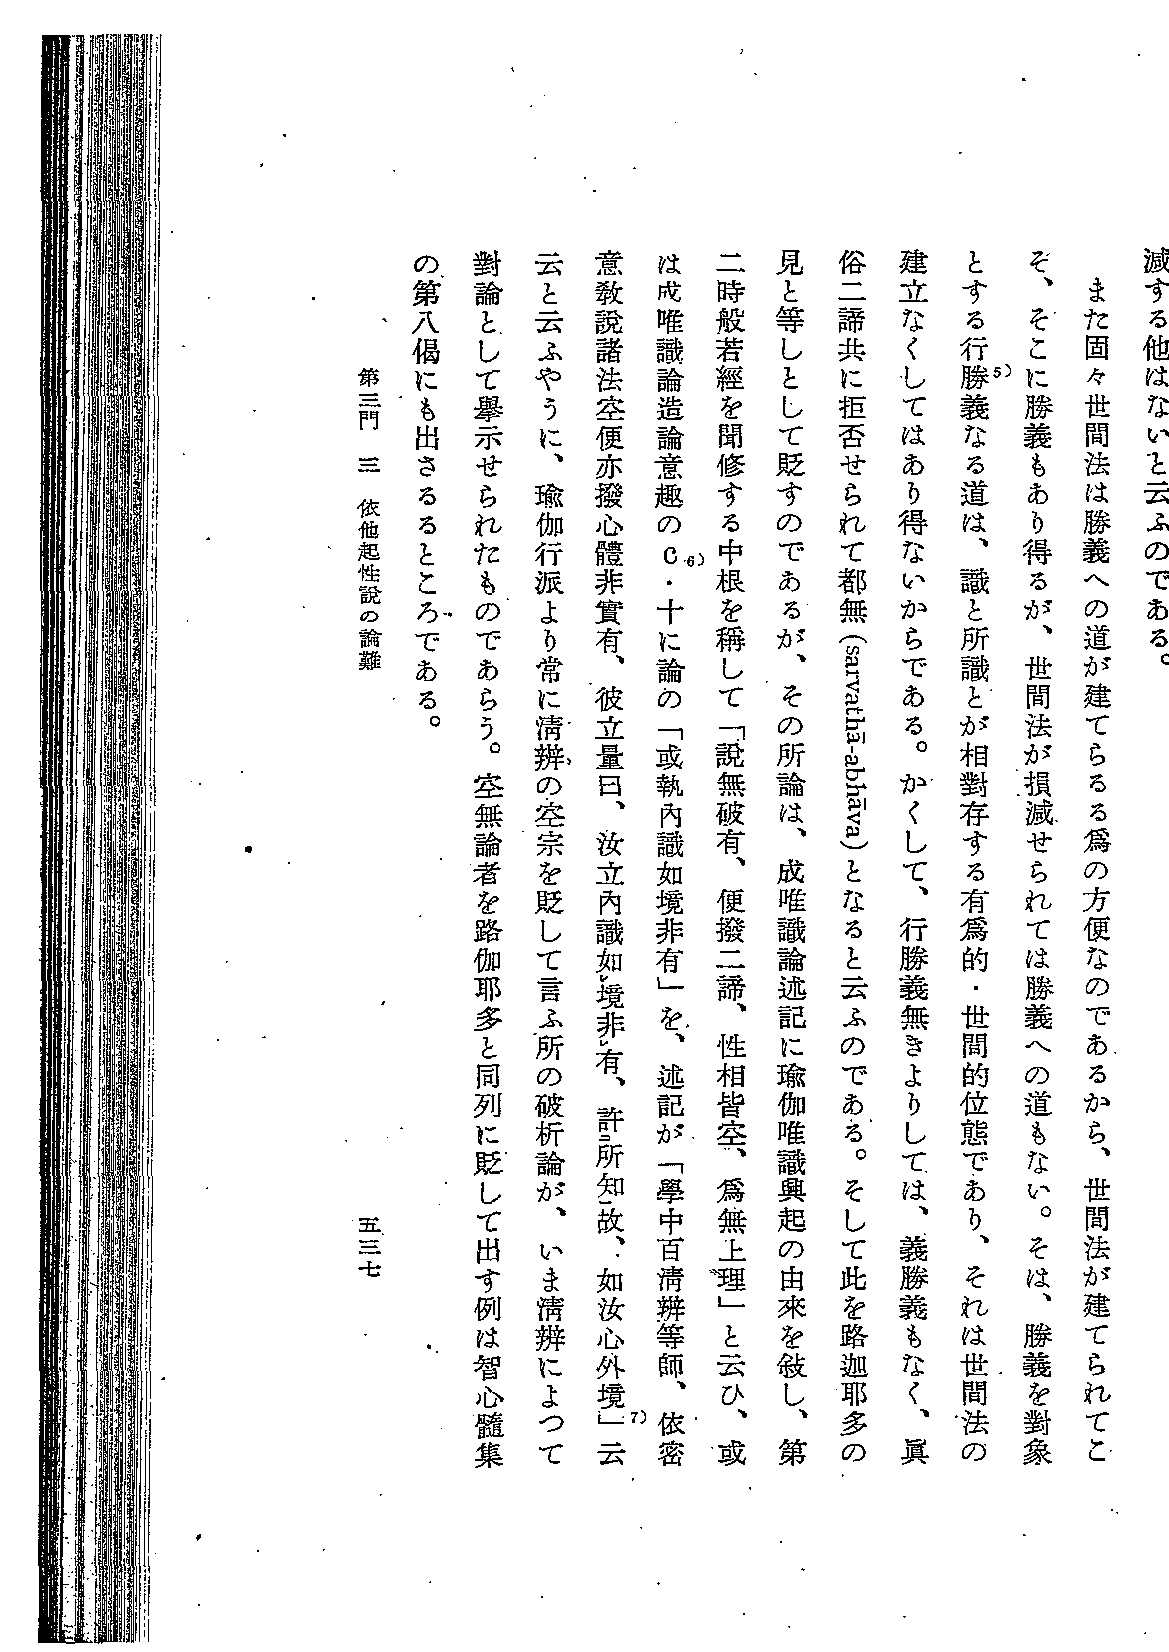 減する他はないと云ふのである。
また固々世間法は勝義への道が建てらるる爲の方便なのであるから、世間法が建てられてこ
ぞ、そこに勝義もあり得るが、世間法が損減せられては勝義への道もない。そは、勝義を對象
とする行勝義5)なる道は、識と所識とが相對存する有爲的・世間的位態であり、それは世間法の
建立なくしてはあり得ないからである。かくして、行勝義無きよりしては、義勝義もなく、眞
俗二諦共に拒否せられて都無(sarvathā-abhāva)となると云ふのである。そして此を路迦耶多の
見と等しとして貶すのであるが、その所論は、成唯識論述記に瑜伽唯識興起の由來を敍し、第
二時般若經を聞修する中根を稱して「說無破有、便撥二諦、性相皆空、爲無上理」と云ひ、或
は成唯識論造論意趣のC6)・十に論の「或執內識如境非有」を、述記が「學中百淸辨等師、依密
意敎說諸法空便亦撥心體非實有、彼立量曰、汝立內識如レ境非レ有、許二所知一故、如汝心外境」7)云
云と云ふやうに、瑜伽行派より常に淸辨の空宗を貶して言ふ所の破析論が、いま淸辨によつて
對論として擧示せられたものであらう。空無論者を路伽耶多と同列に貶して出す例は智心髓集
の第八偈にも出さるるところである。
第三門 三 依他起性說の論難 五三七